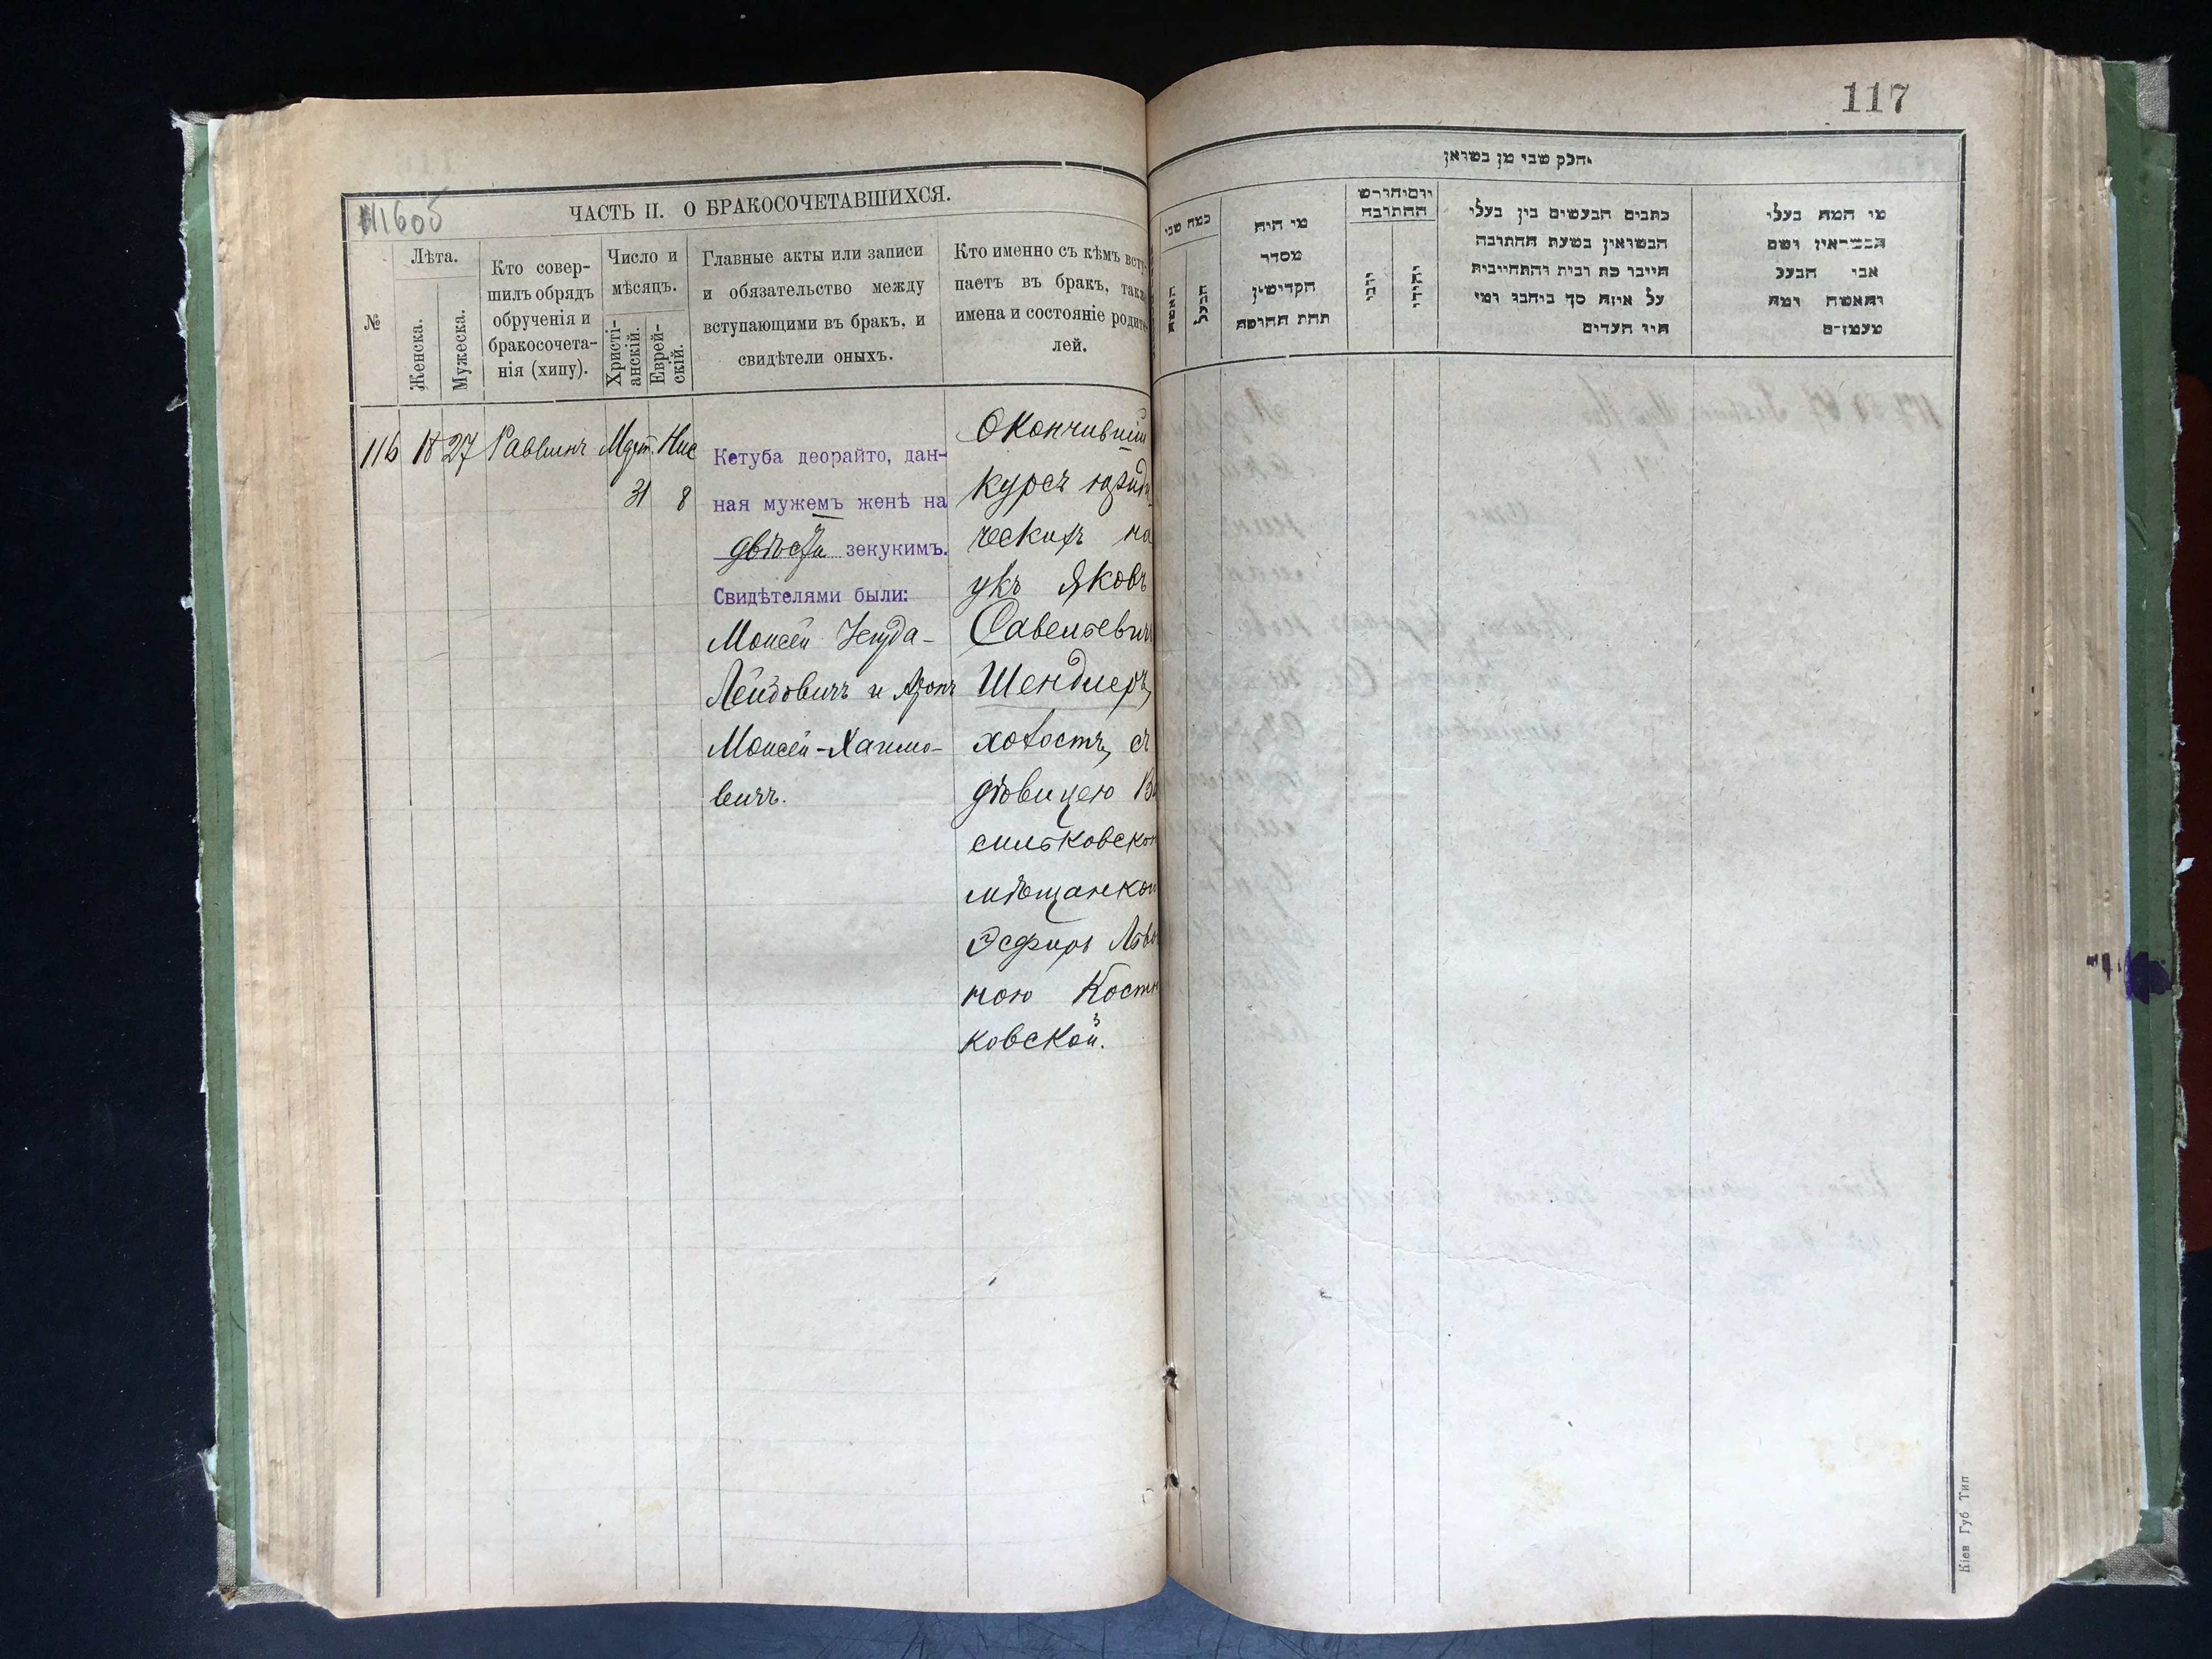 117
№1605
ЧАСТЬ II. О БРАКОСОЧЕТАВШИХСЯ.
№
Лѣта.
Женска.
Мужеска.
Кто совер-
шилъ обрядъ
обрученія и
бракосочета-
нія (хипу).
Число и
мѣсяцъ.
Христі-
анскій.
Еврей-
скій.
Главные акты или записи
и обязательство между
вступающими въ бракъ, и
свидѣтели оныхъ.
Кто именно съ кѣмъ всту-
паетъ въ бракъ, также
имена и состояніе родите-
лей.
116 18 27 Раввинъ Март. Нис
31 8
Кетуба деорайто, дан-
ная мужемъ женѣ на
двѣсти зекукимъ.
Свидѣтелями были:
Моисей Іегуда-
Лейбовичъ и Аронъ
Моисей-Хаимо-
вичъ.
Окончившій
курсъ юриди
ческихъ на
укъ Яковъ
Савельевичъ
Шендлеръ,
холостъ, съ
дѣвицею Ва
сильковской
мѣщанкой
Эсфирь Льво
ною Костн
ковской.
חלק שני מן נשואן
כמה שני
האשה
הבעל
מי היה
מסדר
הקדושין
תחת החופה
יום וחודש
החתונה
יוני
יהודי
כתבים הנעשים בין בעלי
הנשואין בשעת החתונה
היינו כת ובית והתחייבות
על איזה סך ביחבו ומי
היו העדים
מי המה בעלי
הנשואין ושם
אבי הבעל
והאשה ומה
מעמדם
Кіев Губ Тип